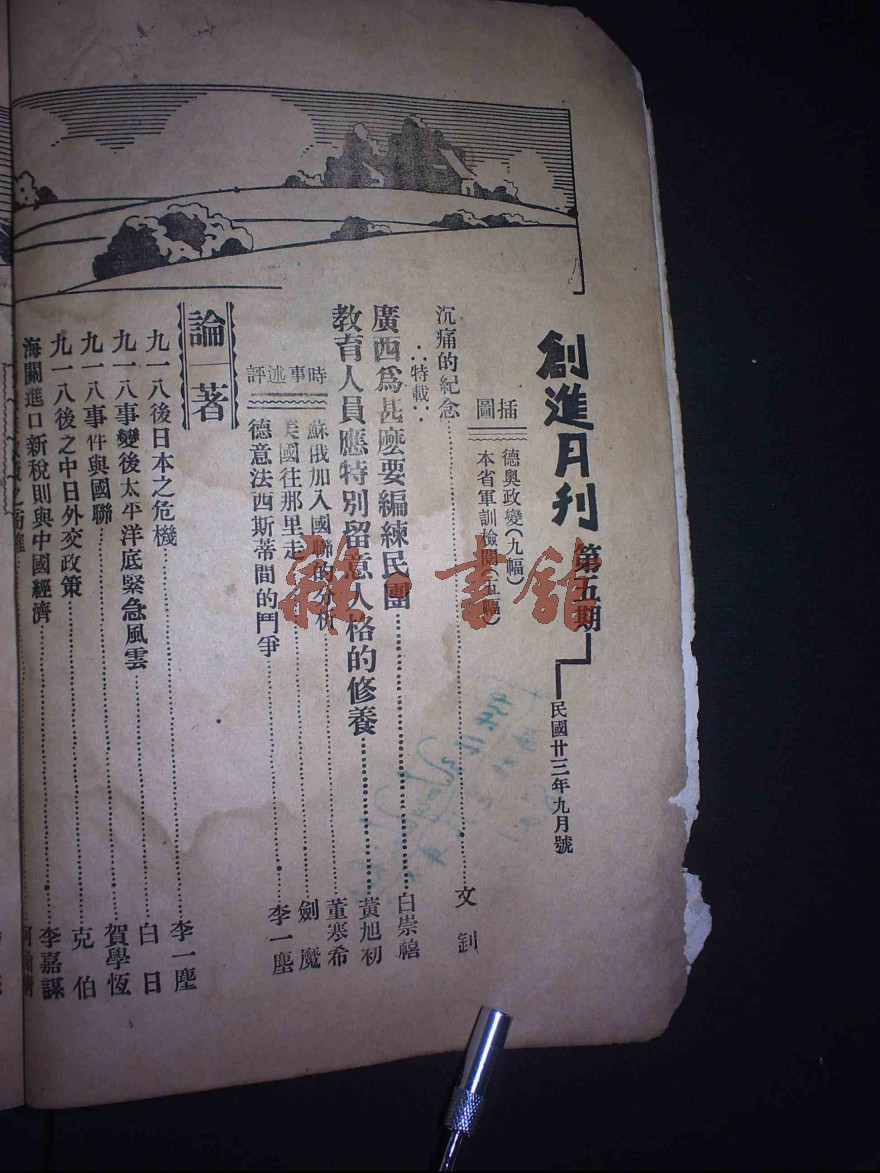 創進月刊 第五期
民國廿三年九月號
插圖
德奧政變(九幅)
本省軍訓檢閱(五幅)
沉痛的紀念 文釗
∴特載∴
廣西爲甚麼要編練民團 白崇禧
教育人員應特別留意人格的修養 黃旭初
時事述評
蘇俄加入國聯的分析 董寒希
美國往那里走 劍魔
德意法西斯蒂間的鬥爭 李一塵
論著
九一八後日本之危機 李一塵
九一八事變後太平洋底緊急風雲 白日
九一八事件與國聯 賀學恆
九一八後之中日外交政策 克伯
海關進口新稅則與中國經濟 李嘉謀
雜·書館